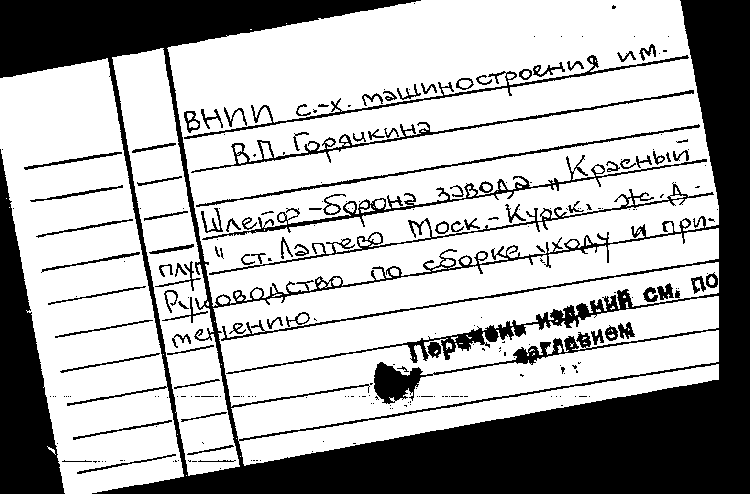 ВНИИ с.-х. машиностроения им.
В.П. Горячкина
Шлейф-борона завода „Красный
плуг" ст. Лаптево Моск.-Курск. ж.д.
Руководство по сборке, уходу и при-
менению.
Перечень изданий см. по
заглавием